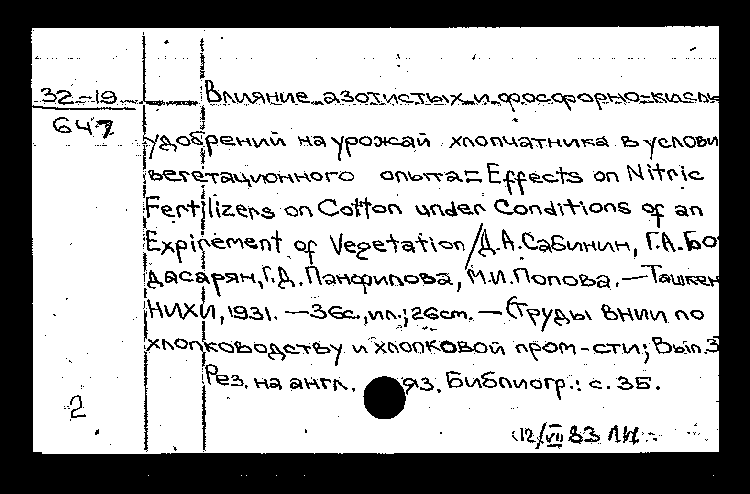 32-19
647
Влияние азотистых и фосфорно-кисл
удобрений на урожай хлопчатника в услови
вегетационного опыта = Effects on Nitric
Fertilizers on Cotton under Conditions of an
Expirement of Vegetation / Д.А. Сабинин, Г.А. Бо
дасарян, Г.Д. Панфилова, М.И. Попова. — Ташкен
НИХИ, 1931. — 36с., ил.; 26см. — (Труды ВНИИ по
хлопководству и хлопковой пром-сти; Вып. 3
Рез. на англ. яз. Библиогр.: с. 35.
2
12/VII 83